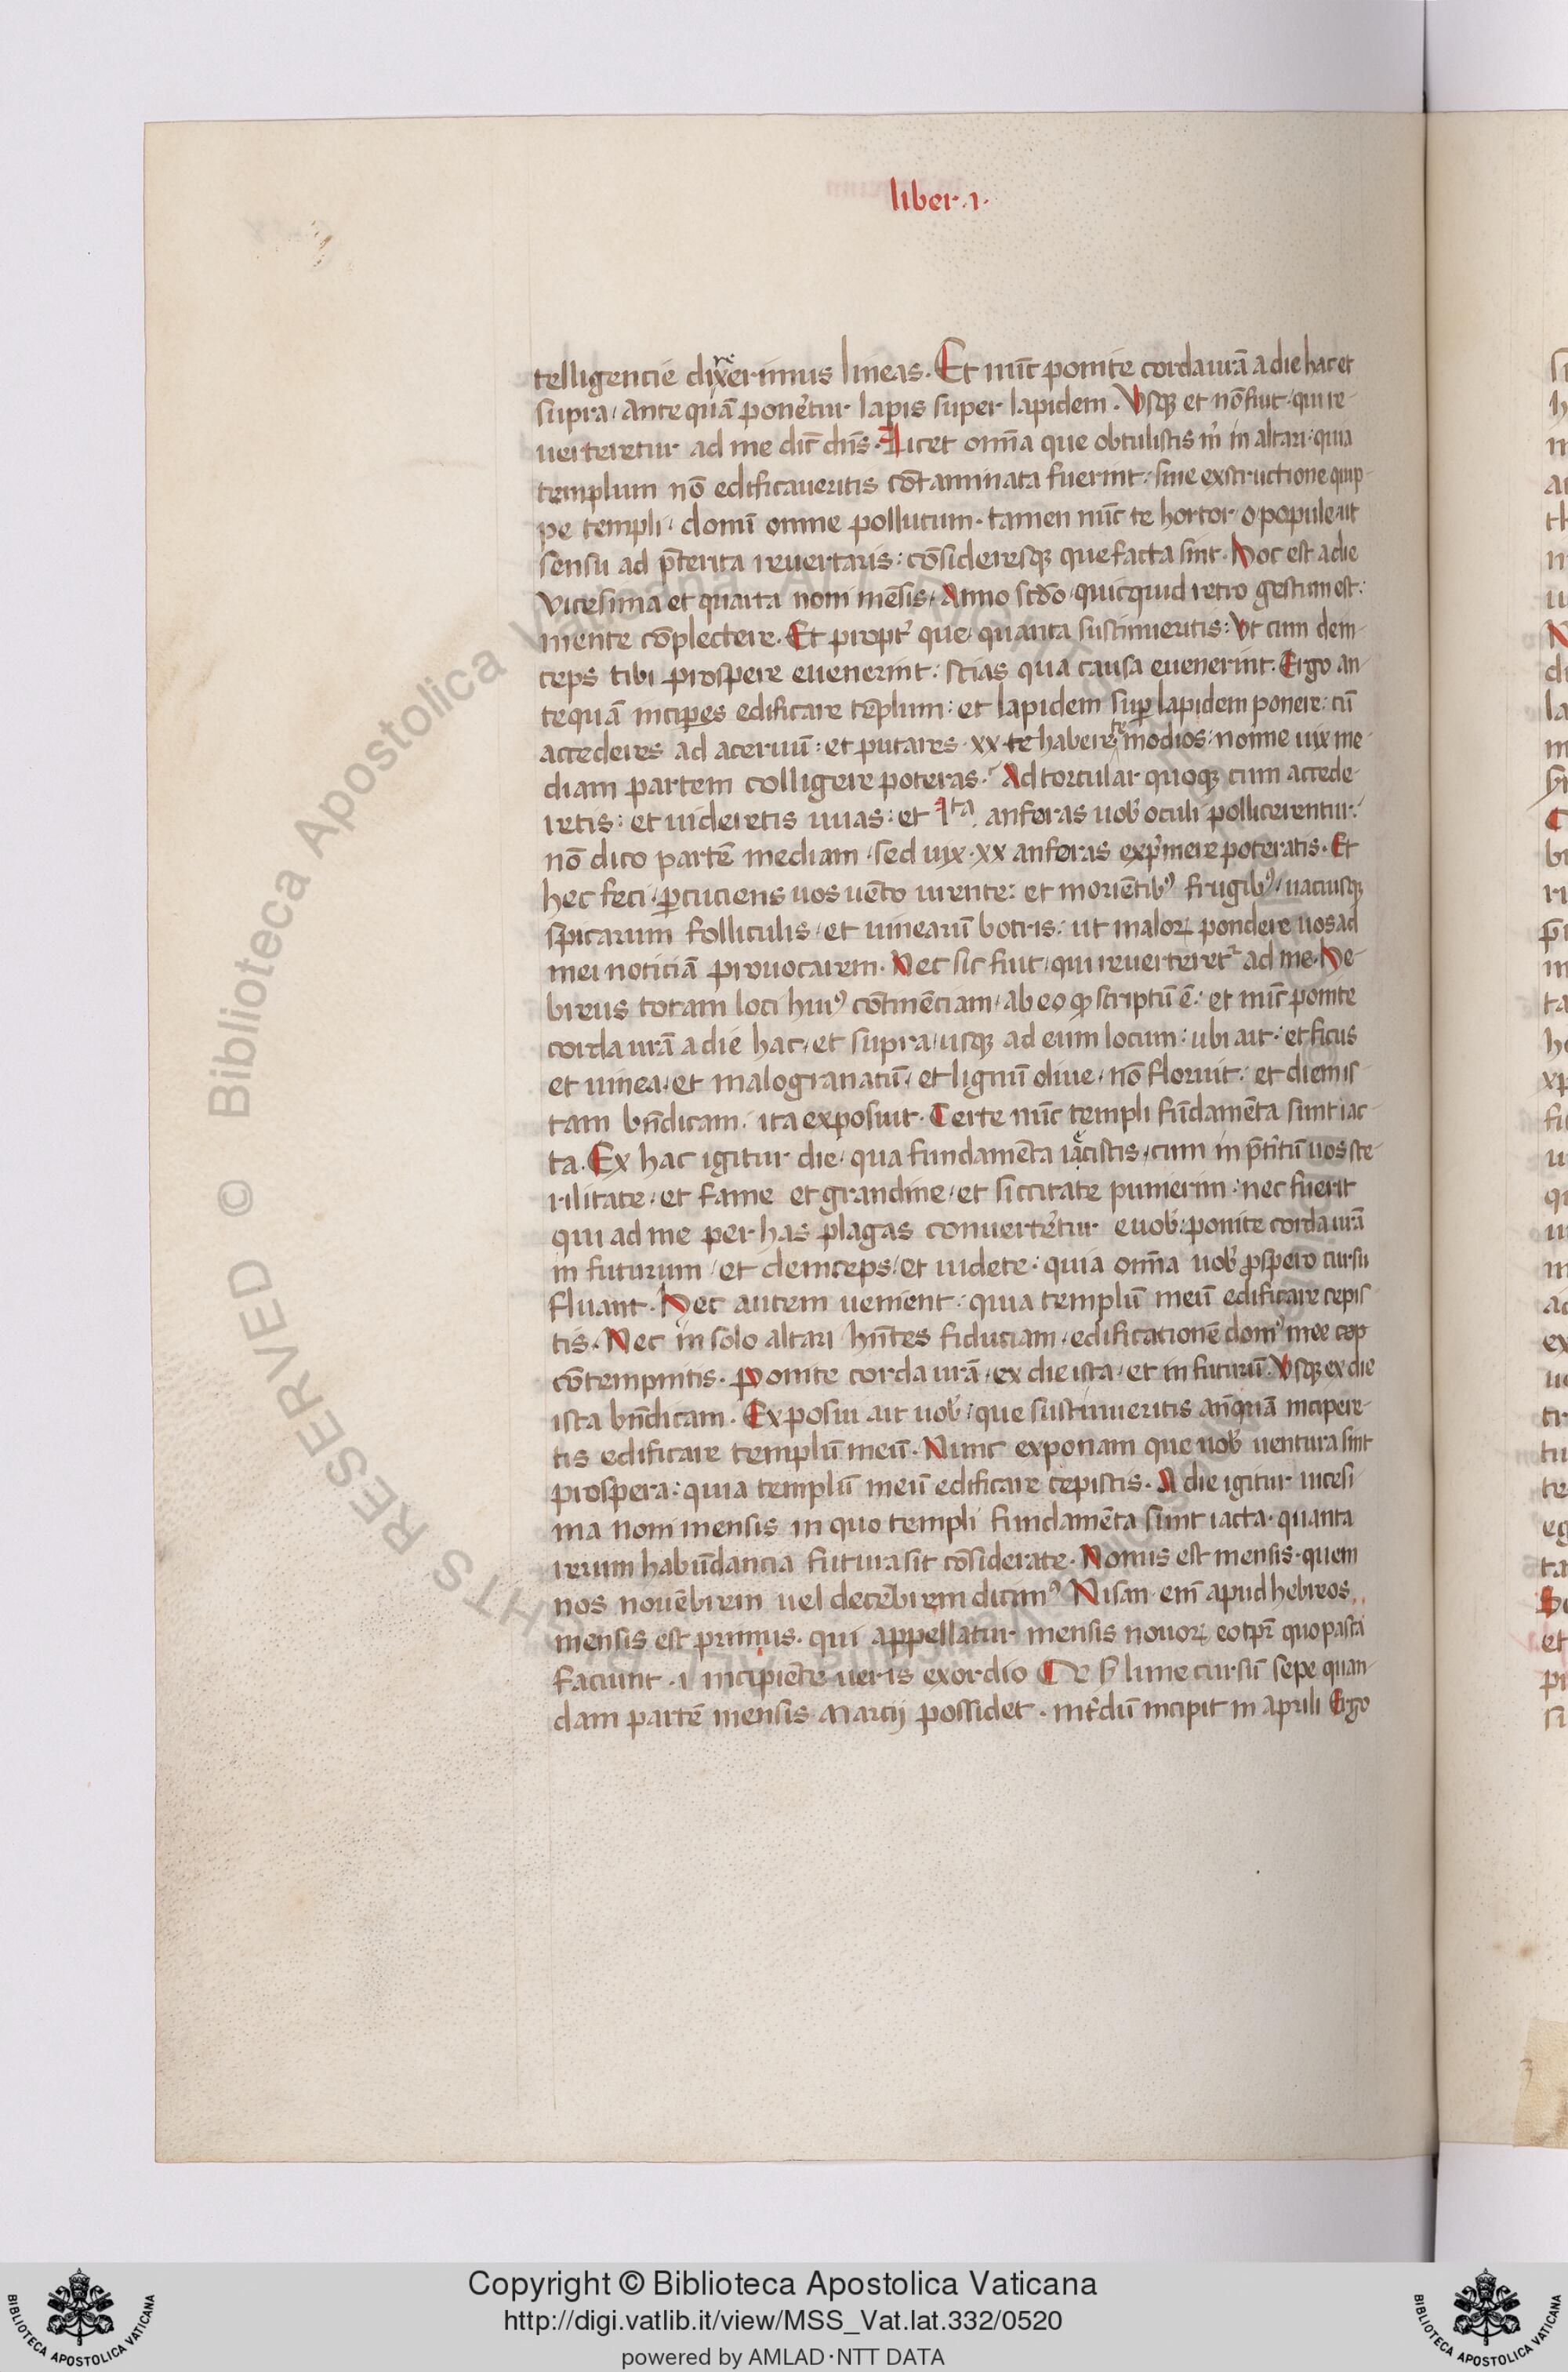 liber .1.
telligencie dixerimus lineas. Et nūc ponite corda urā a die hac et
supra / ante quā poneretur lapis super lapidem. Vsq; et nō fiut / qui re-
uerteretur ad me dic̄ dn̄s. Licet omīa que obtulistis m̄ in altari: quia
templum nō edificaueritis cōtaminata fuerint: sine exstructione quip-
pe templi / domī omne pollutum. tamen nūc te hortor o popule ut
sensu ad p̄terita reuertaris: cōsideresq; que facta sint. Hoc est a die
vicesima et quarta noni mēsis. Anno scdo quicquid retro gestum est:
mente cōplectere. Et propt̉ que quanta sustinueritis: Vt cum dein-
ceps tibi prospere euenerint: scias qua causa euenerint. Ergo an-
tequā inciperes edificare tēplum: et lapidem sup lapidem ponere: cū
accederes ad aceruū: et putares xx te habere modios: nonne uix me-
diam partem colligere poteras. Ad torcular quoq; cum accede-
retis: et uideretis uuas: et lta anforas uob̉ oculi pollicerentur:
nō dico partē mediam sed uix xx anforas exp̉mere poteratis. Et
hec feci / pcuciens uos uēto urente: et moriētibꝰ frugibꝰ / uacuisq;
spicarum folliculis / et uinearū botris: ut maloꝝ pondere uos ad
mei noticiā prouocarem. Nec sic fiut / qui reuerteret̉ ad me. He-
breus totam loci huiꝰ cōtinēciam / ab eo q scriptū ē: et nūc ponite
corda urā a die hac / et supra / usq; ad eum locum: ubi ait: et ficus
et uinea / et malogranatū / et lignū oliue / nō floruit: et die nis-
tam bn̄dicam: ita exposuit. Certe nūc templi fūdamēta sunt iac-
ta. Ex hac igitur die / qua fundamēta iacistis / cum in p̄t̉itū uos ste-
rilitate / et fame et grandine / et siccitate punierim: nec fuerit
qui ad me per has plagas conuerteretur e uob̉: ponite corda urā
in futurum / et deinceps / et uidete: quia omīa uob̉ pspero cursu
fluant. Hec autem uenient: quia templū meū edificare cepis-
tis. Nec in solo altari hn̄tes fiduciam / edificationē domꝰ mee cep
cōtempnitis. Ponite corda urā / ex die ista / et in futurū. Vsq; ex die
ista bn̄dicam. Exposui ait uob̉: que sustinueritis an̄quā incipere-
tis edificare templū meū. Nunc exponam que uob̉ uentura sint
prospera: quia templū meū edificare cepistis. A die igitur uicesi-
ma noni mensis in quo templi fundamēta sunt iacta quanta
rerum habūdancia futura sit cōsiderate. Nonus est mensis quem
nos nouēbrem uel decēbrem dicimꝰ Nisan em̄ apud hebreos
mensis est primus. qui appellatur mensis nouoꝝ eo tp̄r quo pasca
faciunt .i. incipiēte ueris exordio Qe s; lune cursū sepe quan-
dam partē mensis Marcij possidet. int̉dū incipit in aprili Ergo
Copyright © Biblioteca Apostolica Vaticana
http://digi.vatlib.it/view/MSS_Vat.lat.332/0520
powered by AMLAD·NTT DATA